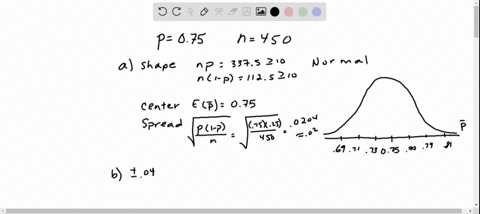 p=0.75 n=450
a) shape np = 337.5 ≥10 Normal
n(1-p) = 112.5 ≥10
center E(p̄) = 0.75
Spread √(p(1-p)/n) = √((.75)(.25)/450) = .0204
≈.02
p̄
.69 .71 .73 0.75 .77 .79 .81
b) ±.04